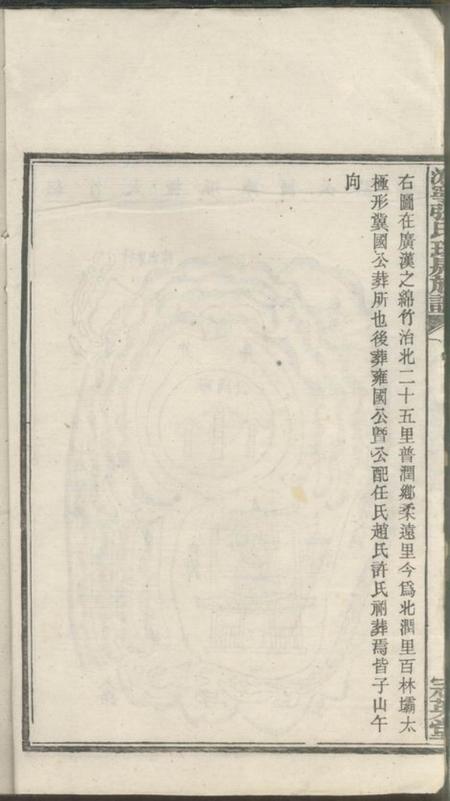 右圖在廣漢之綿竹治北二十五里普潤鄉柔遠里今爲北澗里百林壩太
極形冀國公葬所也後葬雍國公暨公配任氏趙氏許氏祔葬焉皆子山午
向